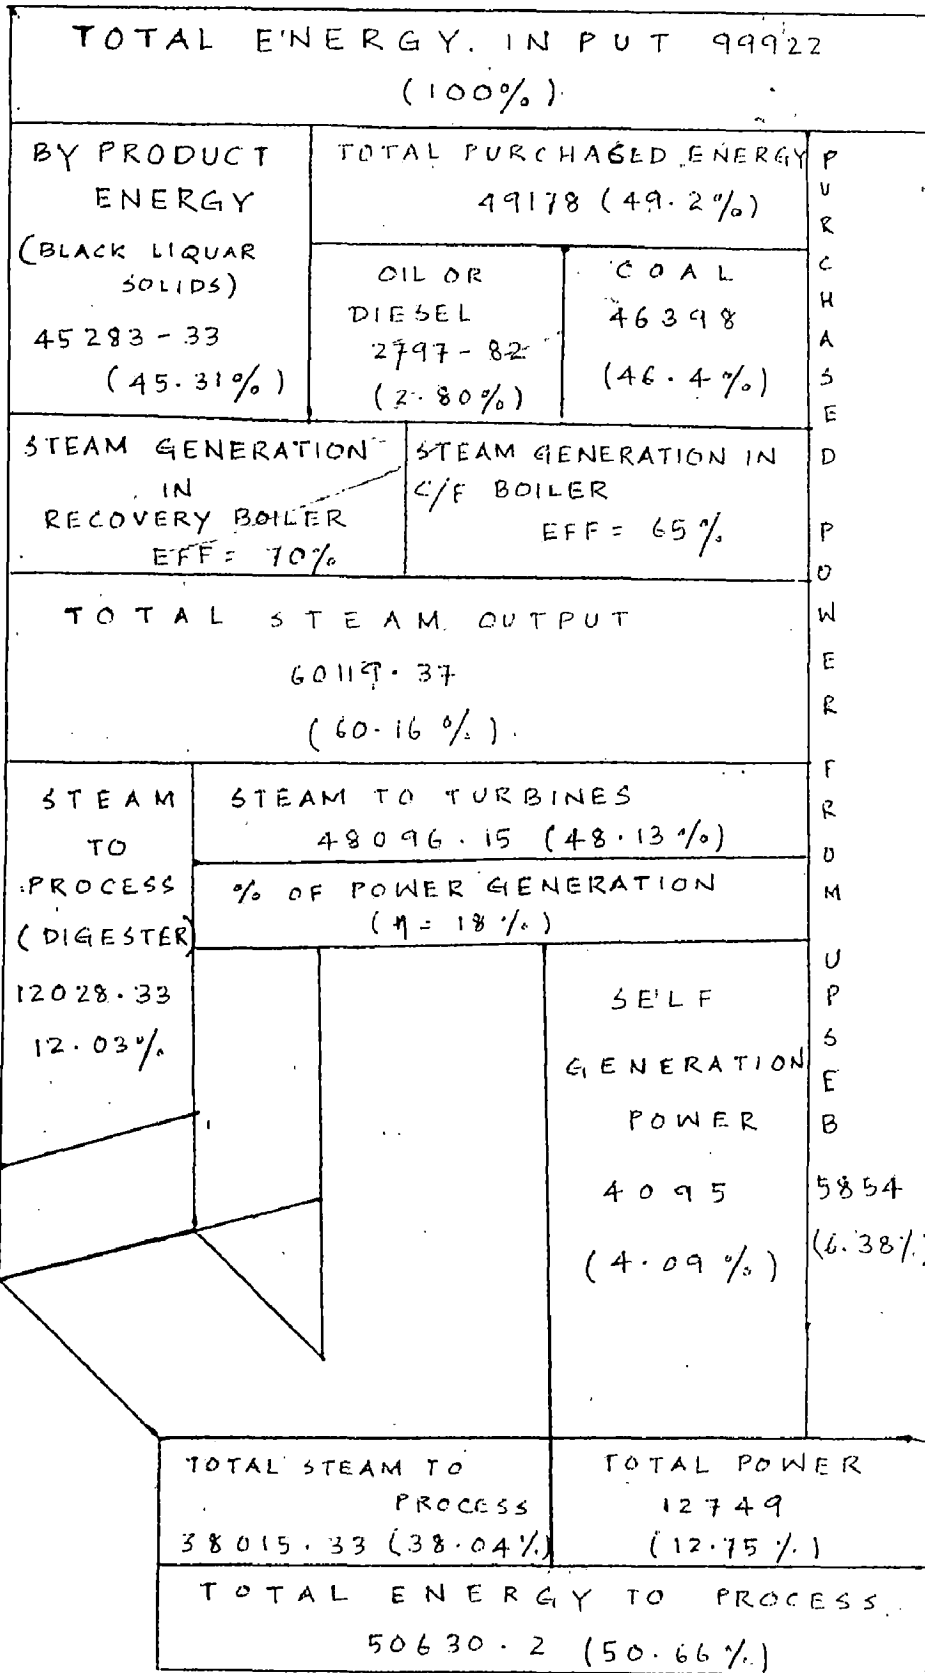 TOTAL ENERGY. INPUT 99922
(100%)
BY PRODUCT
ENERGY
(BLACK LIQUAR
SOLIDS)
45283-33
(45.31%)
TOTAL PURCHASED ENERGY
49178 (49.2%)
OIL OR
DIESEL
2797-82
(2.80%)
COAL
46398
(46.4%)
STEAM GENERATION
IN
RECOVERY BOILER
EFF = 70%
STEAM GENERATION IN
C/F BOILER
EFF = 65%
TOTAL STEAM OUTPUT
60119.37
(60.16%).
STEAM
TO
PROCESS
(DIGESTER)
12028.33
12.03%
STEAM TO TURBINES
48096.15 (48.13%)
% OF POWER GENERATION
(η = 18%)
SELF
GENERATION
POWER
4095
(4.09%)
PURCHASED POWER FROM UPSEB
5854
(6.38%)
TOTAL STEAM TO
PROCESS
38015.33 (38.04%)
TOTAL POWER
12749
(12.75%)
TOTAL ENERGY TO PROCESS
50630.2 (50.66%)